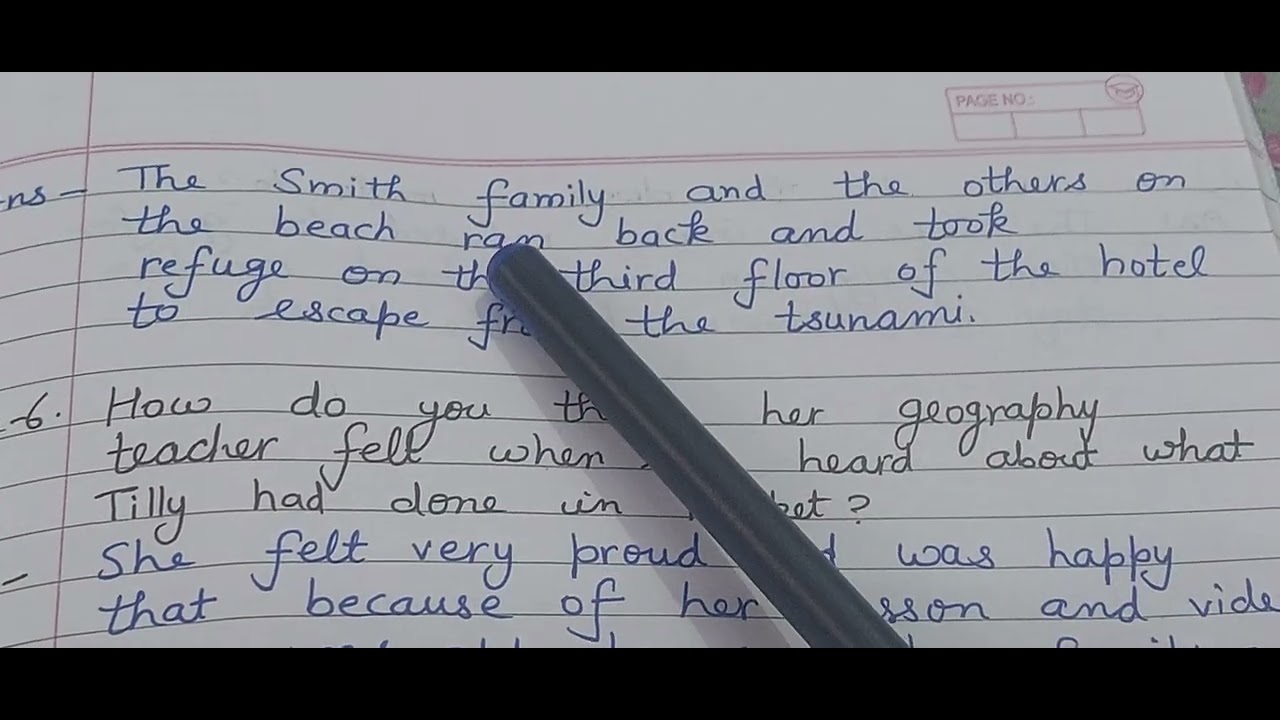 PAGE NO.:
ns - The Smith family and the others on
the beach ran back and took
refuge on the third floor of the hotel
to escape the tsunami.
-6. How do you her geography
teacher felt when heard about what
Tilly had done in ?
- She felt very proud was happy
that because of her and